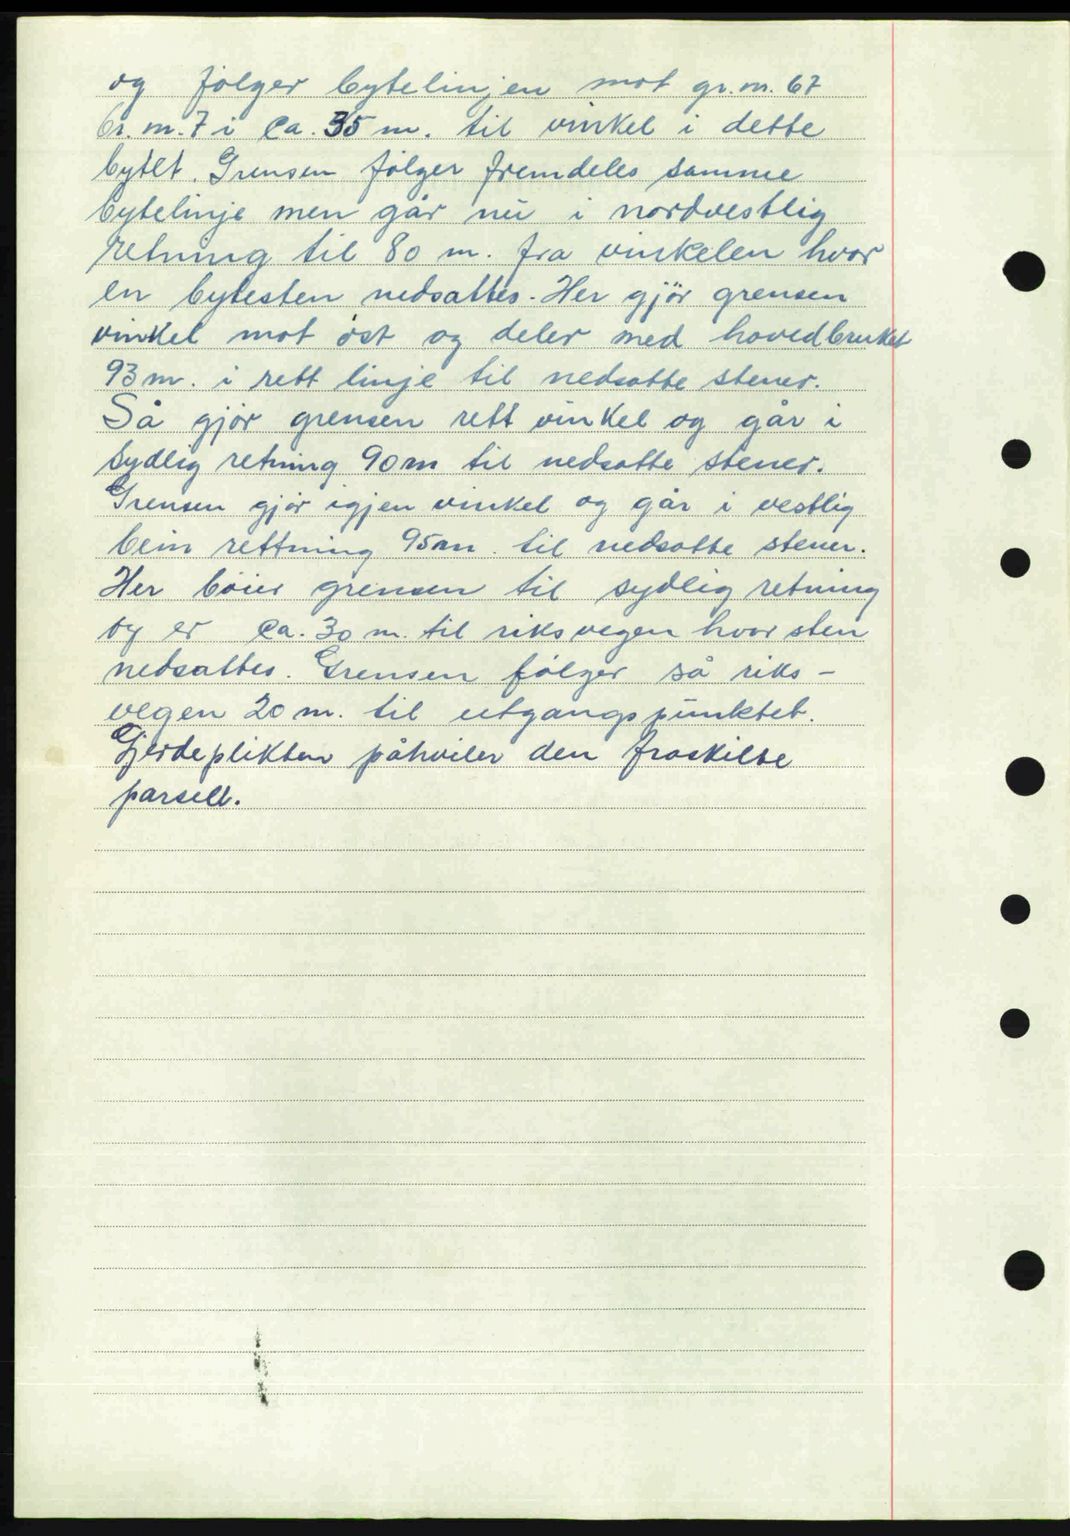 og følger bytelinjen mot gr.nr. 67
br.nr. 7 i ca. 35 m. til vinkel i dette
bytet. Grensen følger fremdeles samme
bytelinje men går nu i nordvestlig
retning til 80 m. fra vinkelen hvor
en bytesten nedsattes. Her gjør grensen
vinkel mot øst og deler med hovedbruket
93 m. i rett linje til nedsatte stener.
Så gjør grensen rett vinkel og går i
sydlig retning 90 m til nedsatte stener.
Grensen gjør igjen vinkel og går i vestlig
bein rettning 95 m. til nedsatte stener.
Her bøier grensen til sydlig retning
og er ca. 30 m. til riksvegen hvor sten
nedsattes. Grensen følger så riks-
vegen 20 m. til utgangspunktet.
Gjerdeplikten påhviler den fraskilte
parsell.